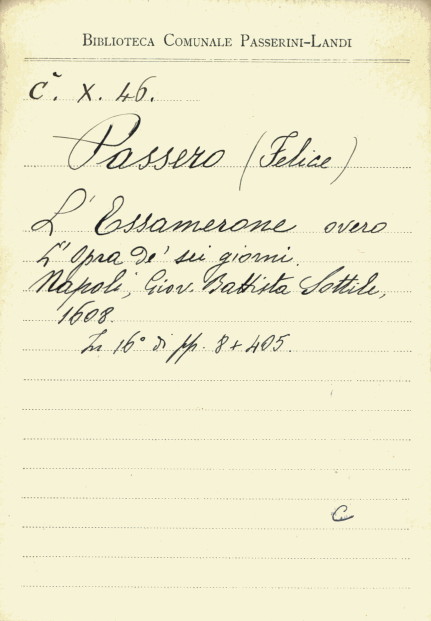 BIBLIOTECA COMUNALE PASSERINI-LANDI
C. X. 46.
Passero (Felice)
L'Essamerone overo
L'Opra de' sei giorni.
Napoli, Giov. Battista Sottile,
1608.
In 16° di pp. 8 + 405.
C